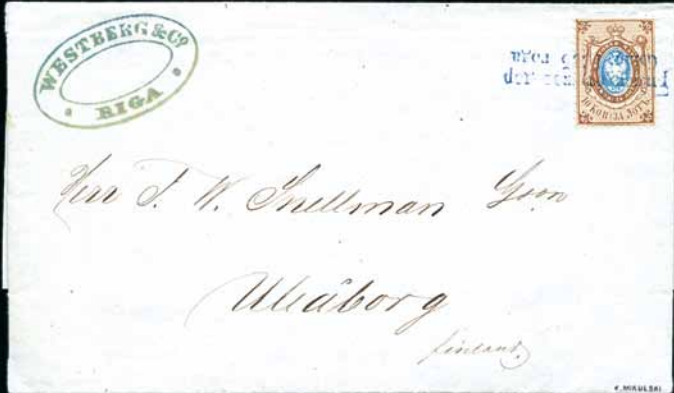 WESTBERG & Cº
RIGA
10 КОП. ЗА ЛОТЪ
Herr J. W. Snellman Gson
Uleåborg
Finland.
K. MIKULSKI